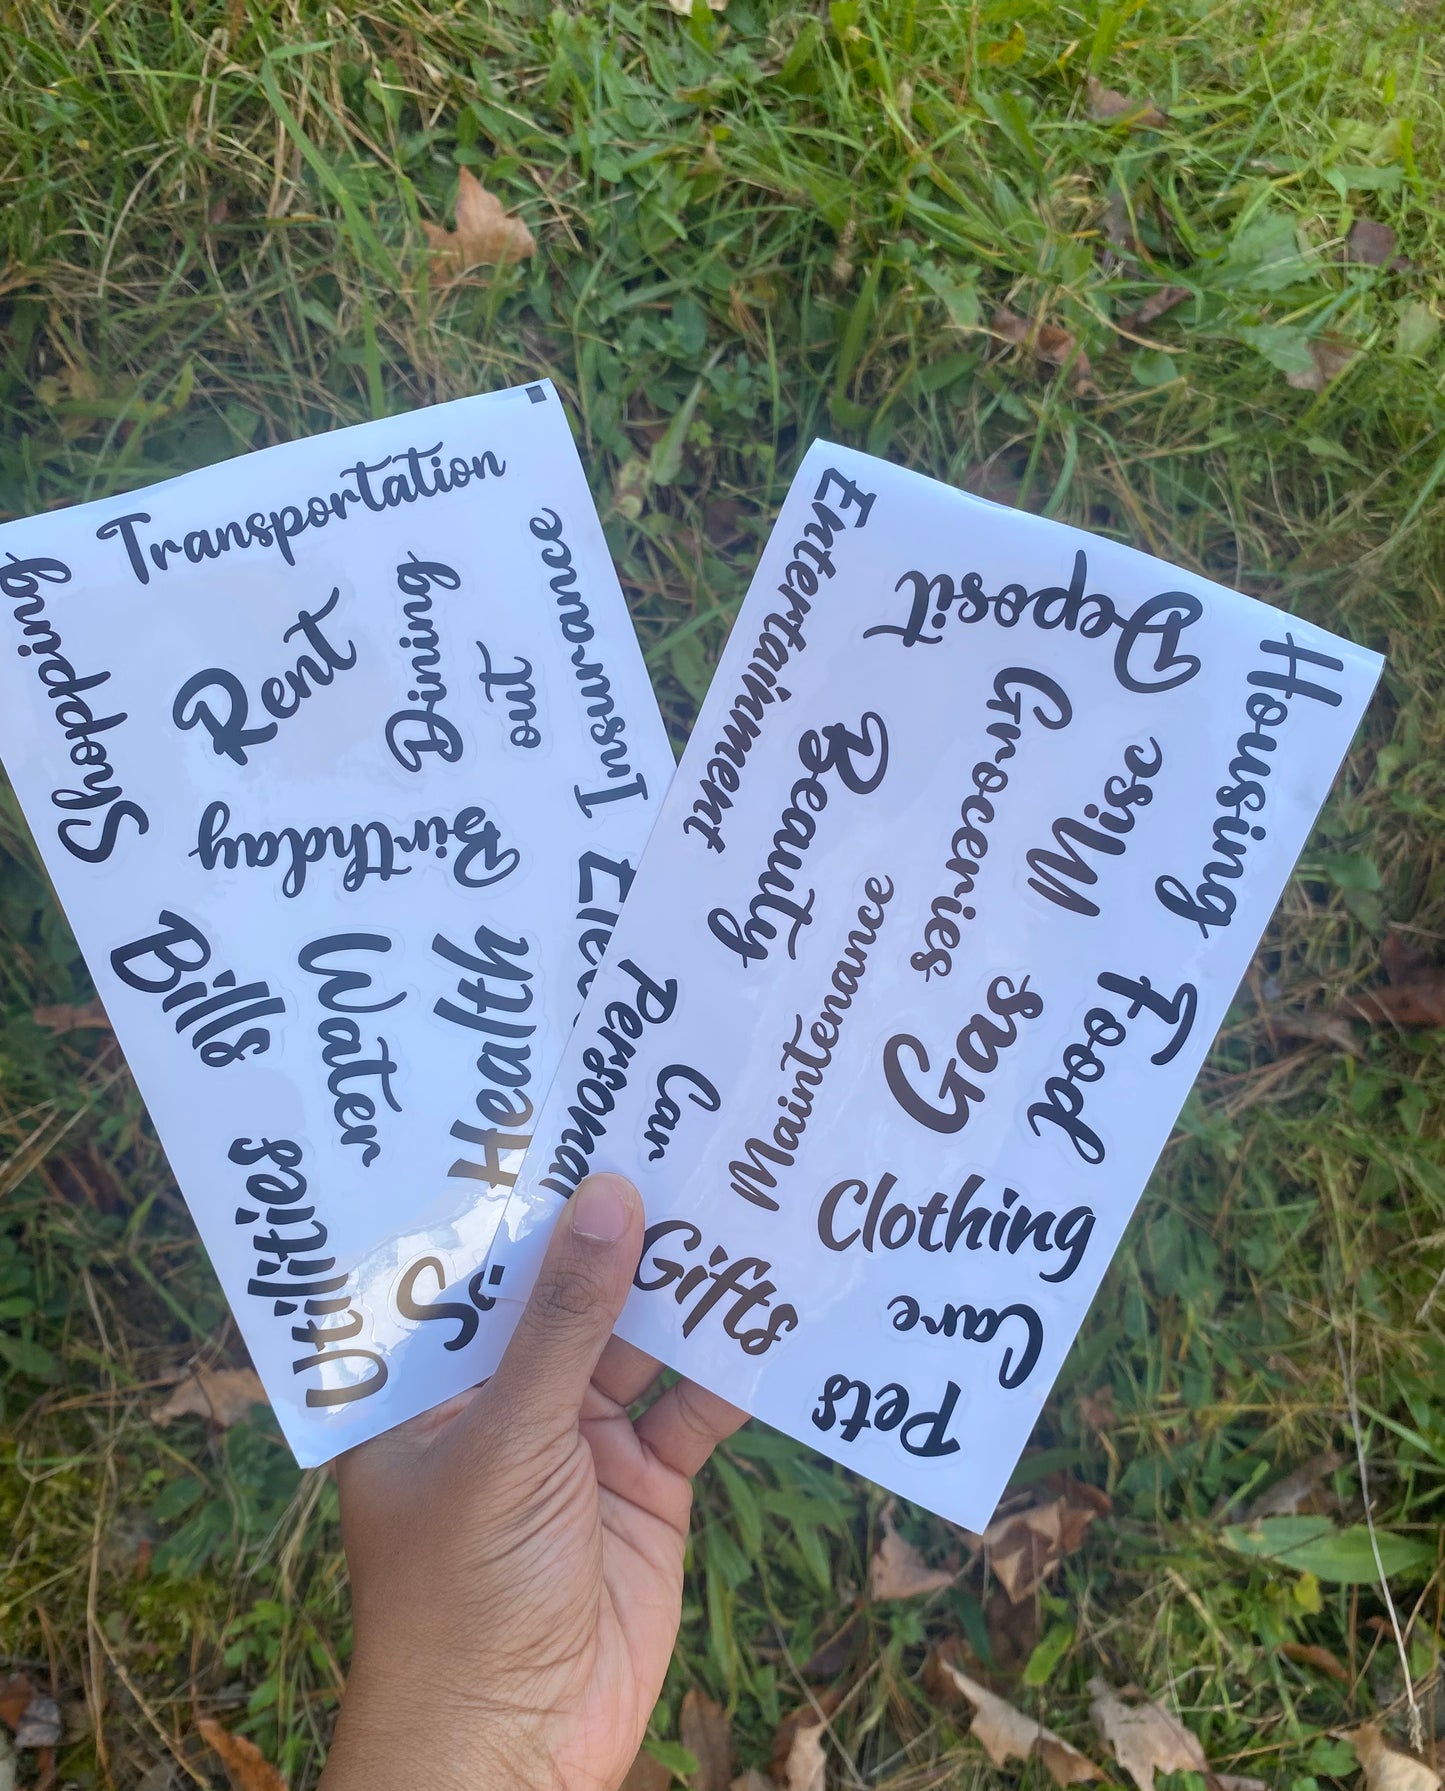 Transportation
Shopping
Rent
Dining
out
Insurance
Birthday
Bills
Water
Health
Utilities
Entertainment
Deposit
Housing
Groceries
Misc
Beauty
Maintenance
Gas
Food
Personal
Car
Clothing
Gifts
Care
Pets